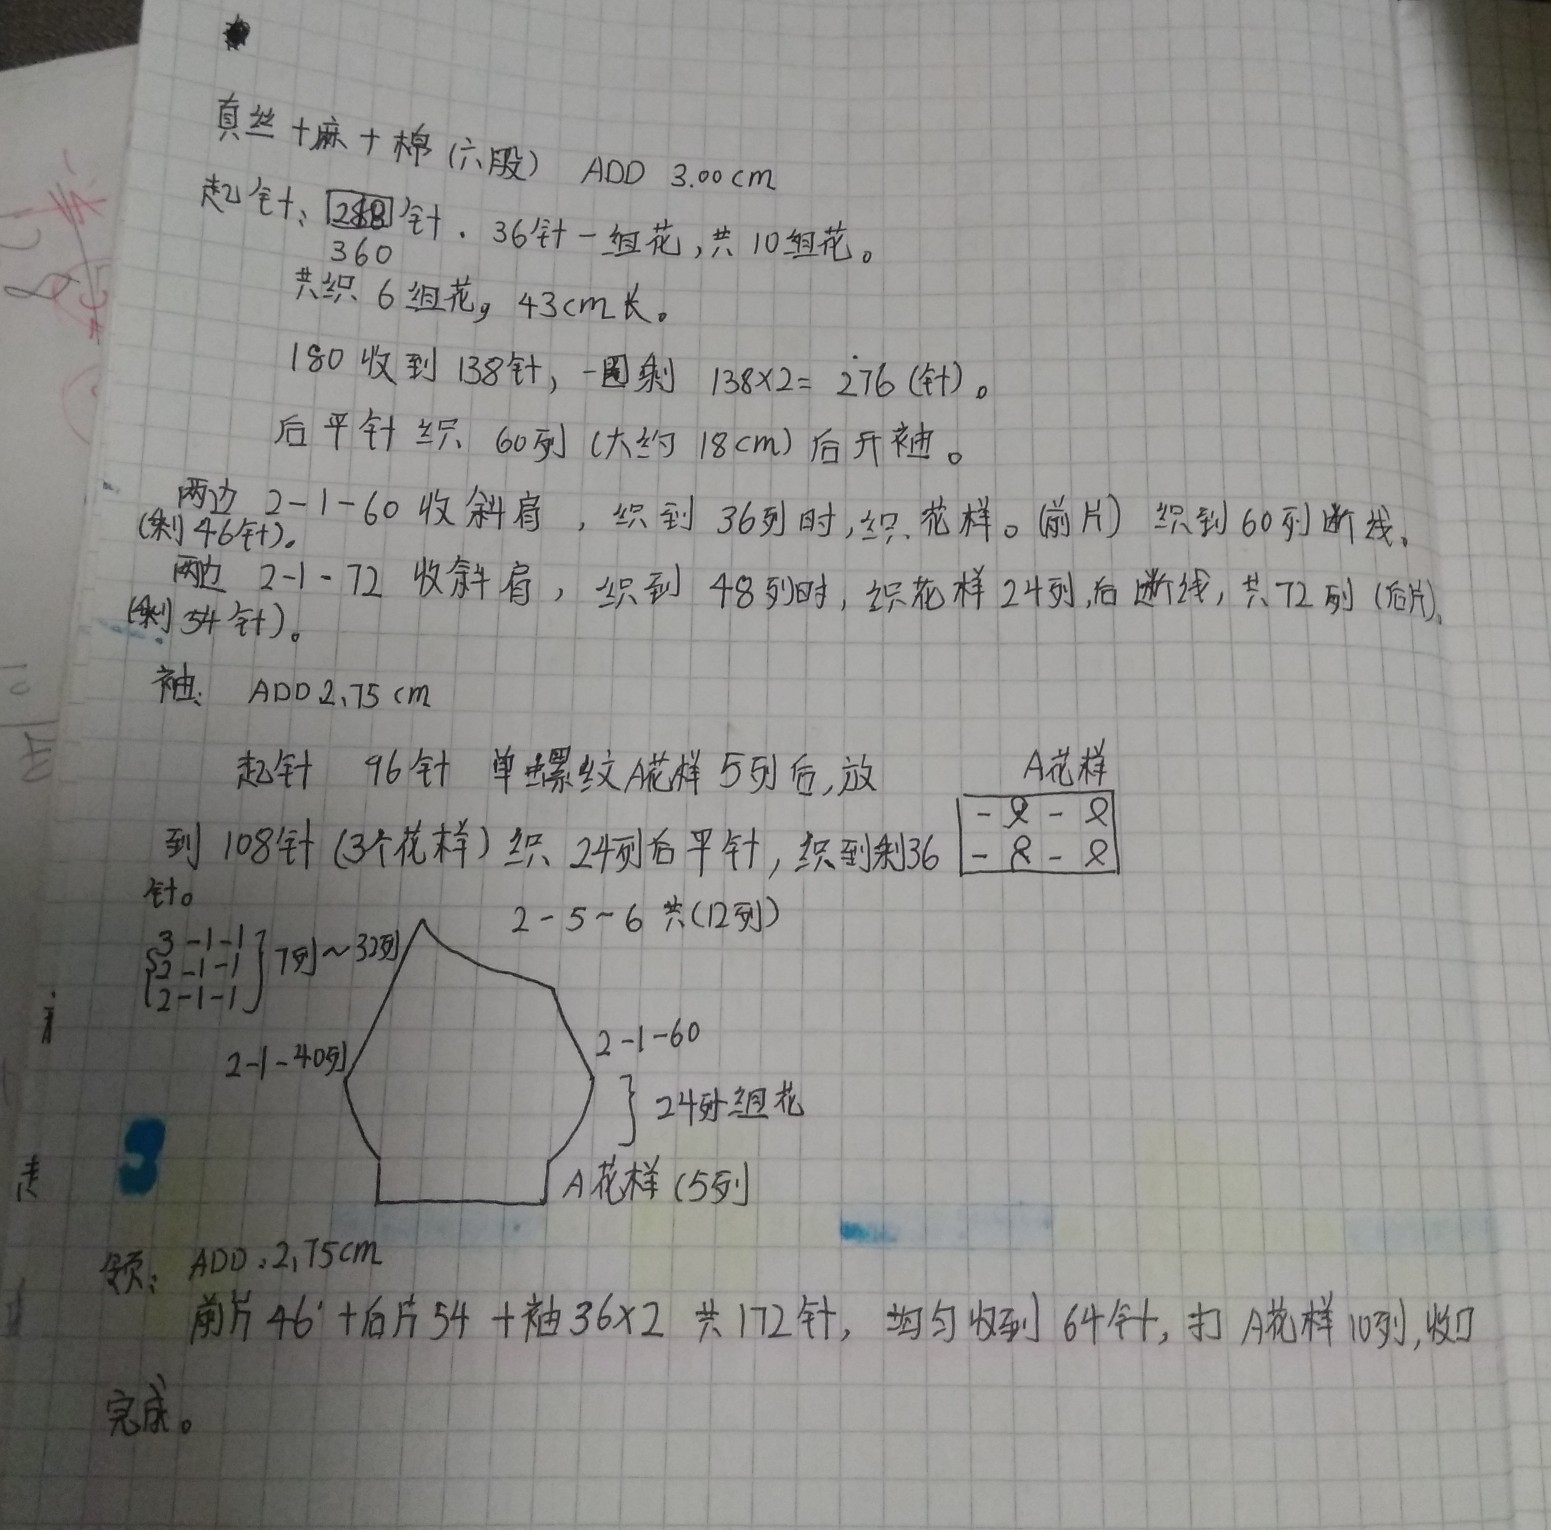 真丝+麻+棉(六股) ADD 3.00cm
起针: 针. 36针一组花,共10组花。
360
共织6组花, 43cm长。
180收到138针,一圈剩 138×2=276(针)。
后平针织 60列(大约18cm)后开袖。
两边 2-1-60收斜肩,织到36列时,织花样。(前片) 织到60列断线。
(剩46针)。
两边 2-1-72 收斜肩,织到48列时,织花样24列,后断线,共72列(后片)。
(剩54针)。
袖: ADD 2.75cm
起针 96针 单螺纹A花样5列后,放
A花样
到108针(3个花样)织24列后平针,织到剩36
- ℓ - ℓ
- ℓ - ℓ
针。
2-5-6共(12列)
3-1-1
2-1-1
2-1-1
7列~32列
2-1-40列
2-1-60
24列组花
A花样(5列)
领: ADD:2.75cm
前片46+后片54+袖36×2 共172针, 均匀收到164针,打A花样10列,收口
完成。